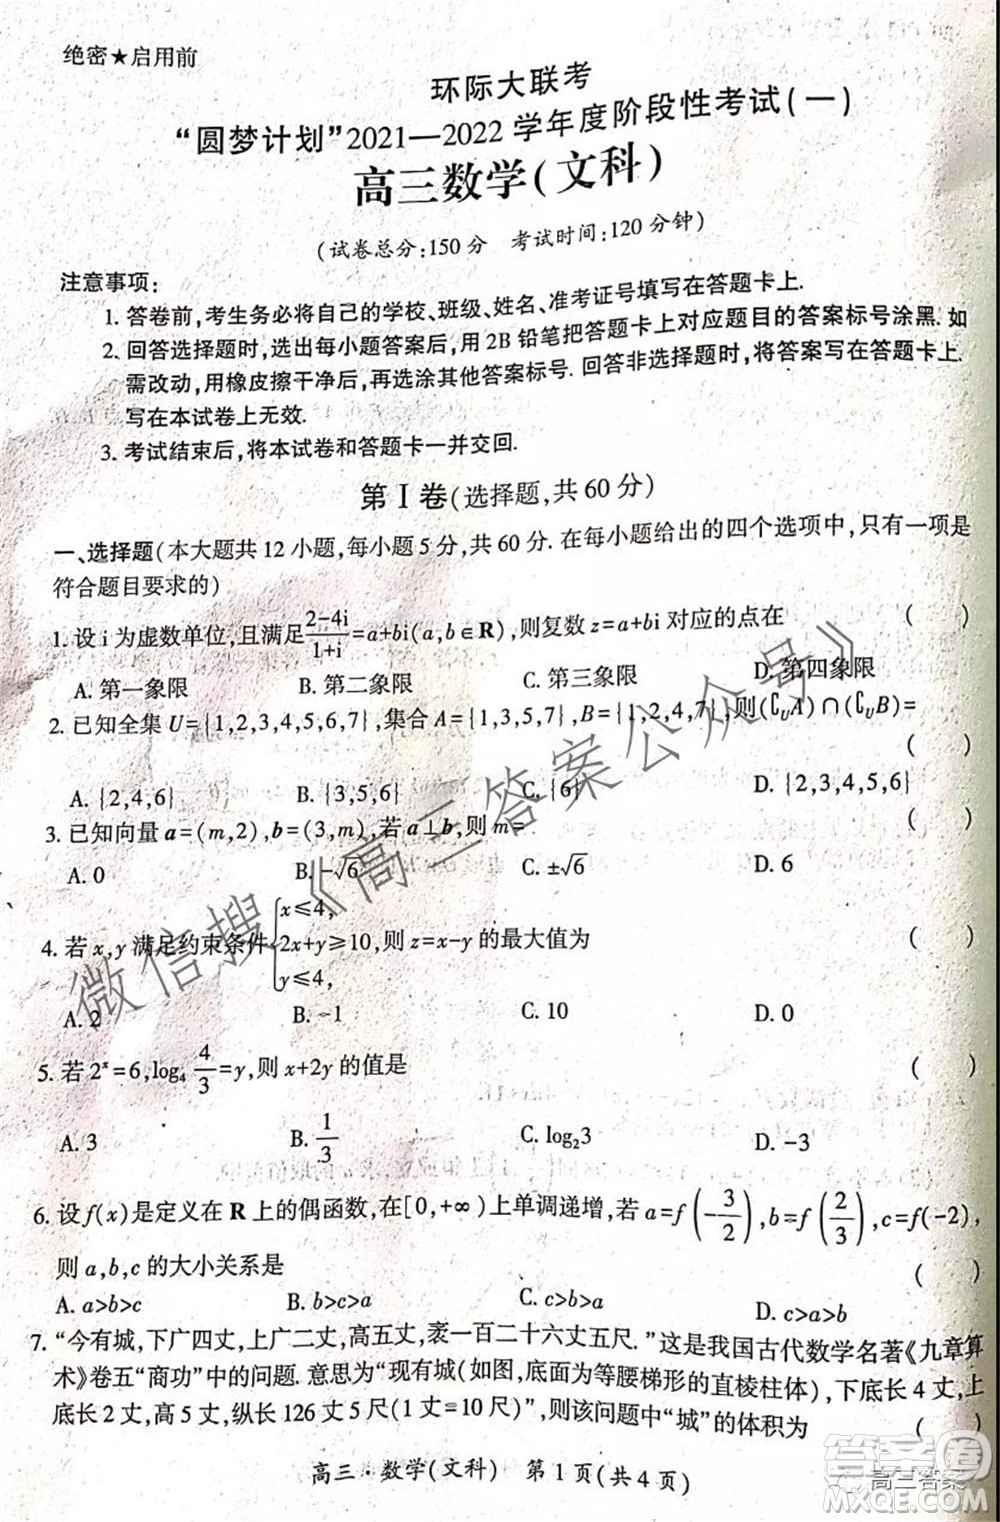 绝密★启用前
环际大联考
“圆梦计划”2021—2022学年度阶段性考试(一)
高三数学(文科)
(试卷总分:150分 考试时间:120分钟)
注意事项:
1. 答卷前,考生务必将自己的学校、班级、姓名、准考证号填写在答题卡上.
2. 回答选择题时,选出每小题答案后,用2B铅笔把答题卡上对应题目的答案标号涂黑. 如
需改动,用橡皮擦干净后,再选涂其他答案标号. 回答非选择题时,将答案写在答题卡上.
写在本试卷上无效.
3. 考试结束后,将本试卷和答题卡一并交回.
第Ⅰ卷(选择题,共60分)
一、选择题(本大题共12小题,每小题5分,共60分. 在每小题给出的四个选项中,只有一项是
符合题目要求的)
1. 设i为虚数单位,且满足\frac{2-4i}{1+i}=a+bi(a,b∈R),则复数z=a+bi对应的点在 ( )
A. 第一象限 B. 第二象限 C. 第三象限 D. 第四象限
2. 已知全集U={1,2,3,4,5,6,7},集合A={1,3,5,7},B={1,2,4,7},则(∁_UA)∩(∁_UB)=
( )
A. {2,4,6} B. {3,5,6} C. {6} D. {2,3,4,5,6}
3. 已知向量a=(m,2),b=(3,m),若a⊥b,则m= ( )
A. 0 B. -√6 C. ±√6 D. 6
4. 若x,y满足约束条件{x≤4, 2x+y≥10, y≤4,则z=x-y的最大值为 ( )
A. 2 B. -1 C. 10 D. 0
5. 若2^x=6,log_4\frac{4}{3}=y,则x+2y的值是 ( )
A. 3 B. \frac{1}{3} C. log_23 D. -3
6. 设f(x)是定义在R上的偶函数,在[0,+∞)上单调递增,若a=f(-\frac{3}{2}),b=f(\frac{2}{3}),c=f(-2),
则a,b,c的大小关系是 ( )
A. a>b>c B. b>a>c C. c>b>a D. c>a>b
7. “今有城,下广四丈,上广二丈,高五丈,袤一百二十六丈五尺. ”这是我国古代数学名著《九章算
术》卷五“商功”中的问题. 意思为“现有城(如图,底面为等腰梯形的直棱柱体),下底长4丈,上
底长2丈,高5丈,纵长126丈5尺(1丈=10尺)”,则该问题中“城”的体积为 ( )
高三·数学(文科) 第1页(共4页)
微信搜《高三答案公众号》
高三答案
答案圈
MXQE.COM